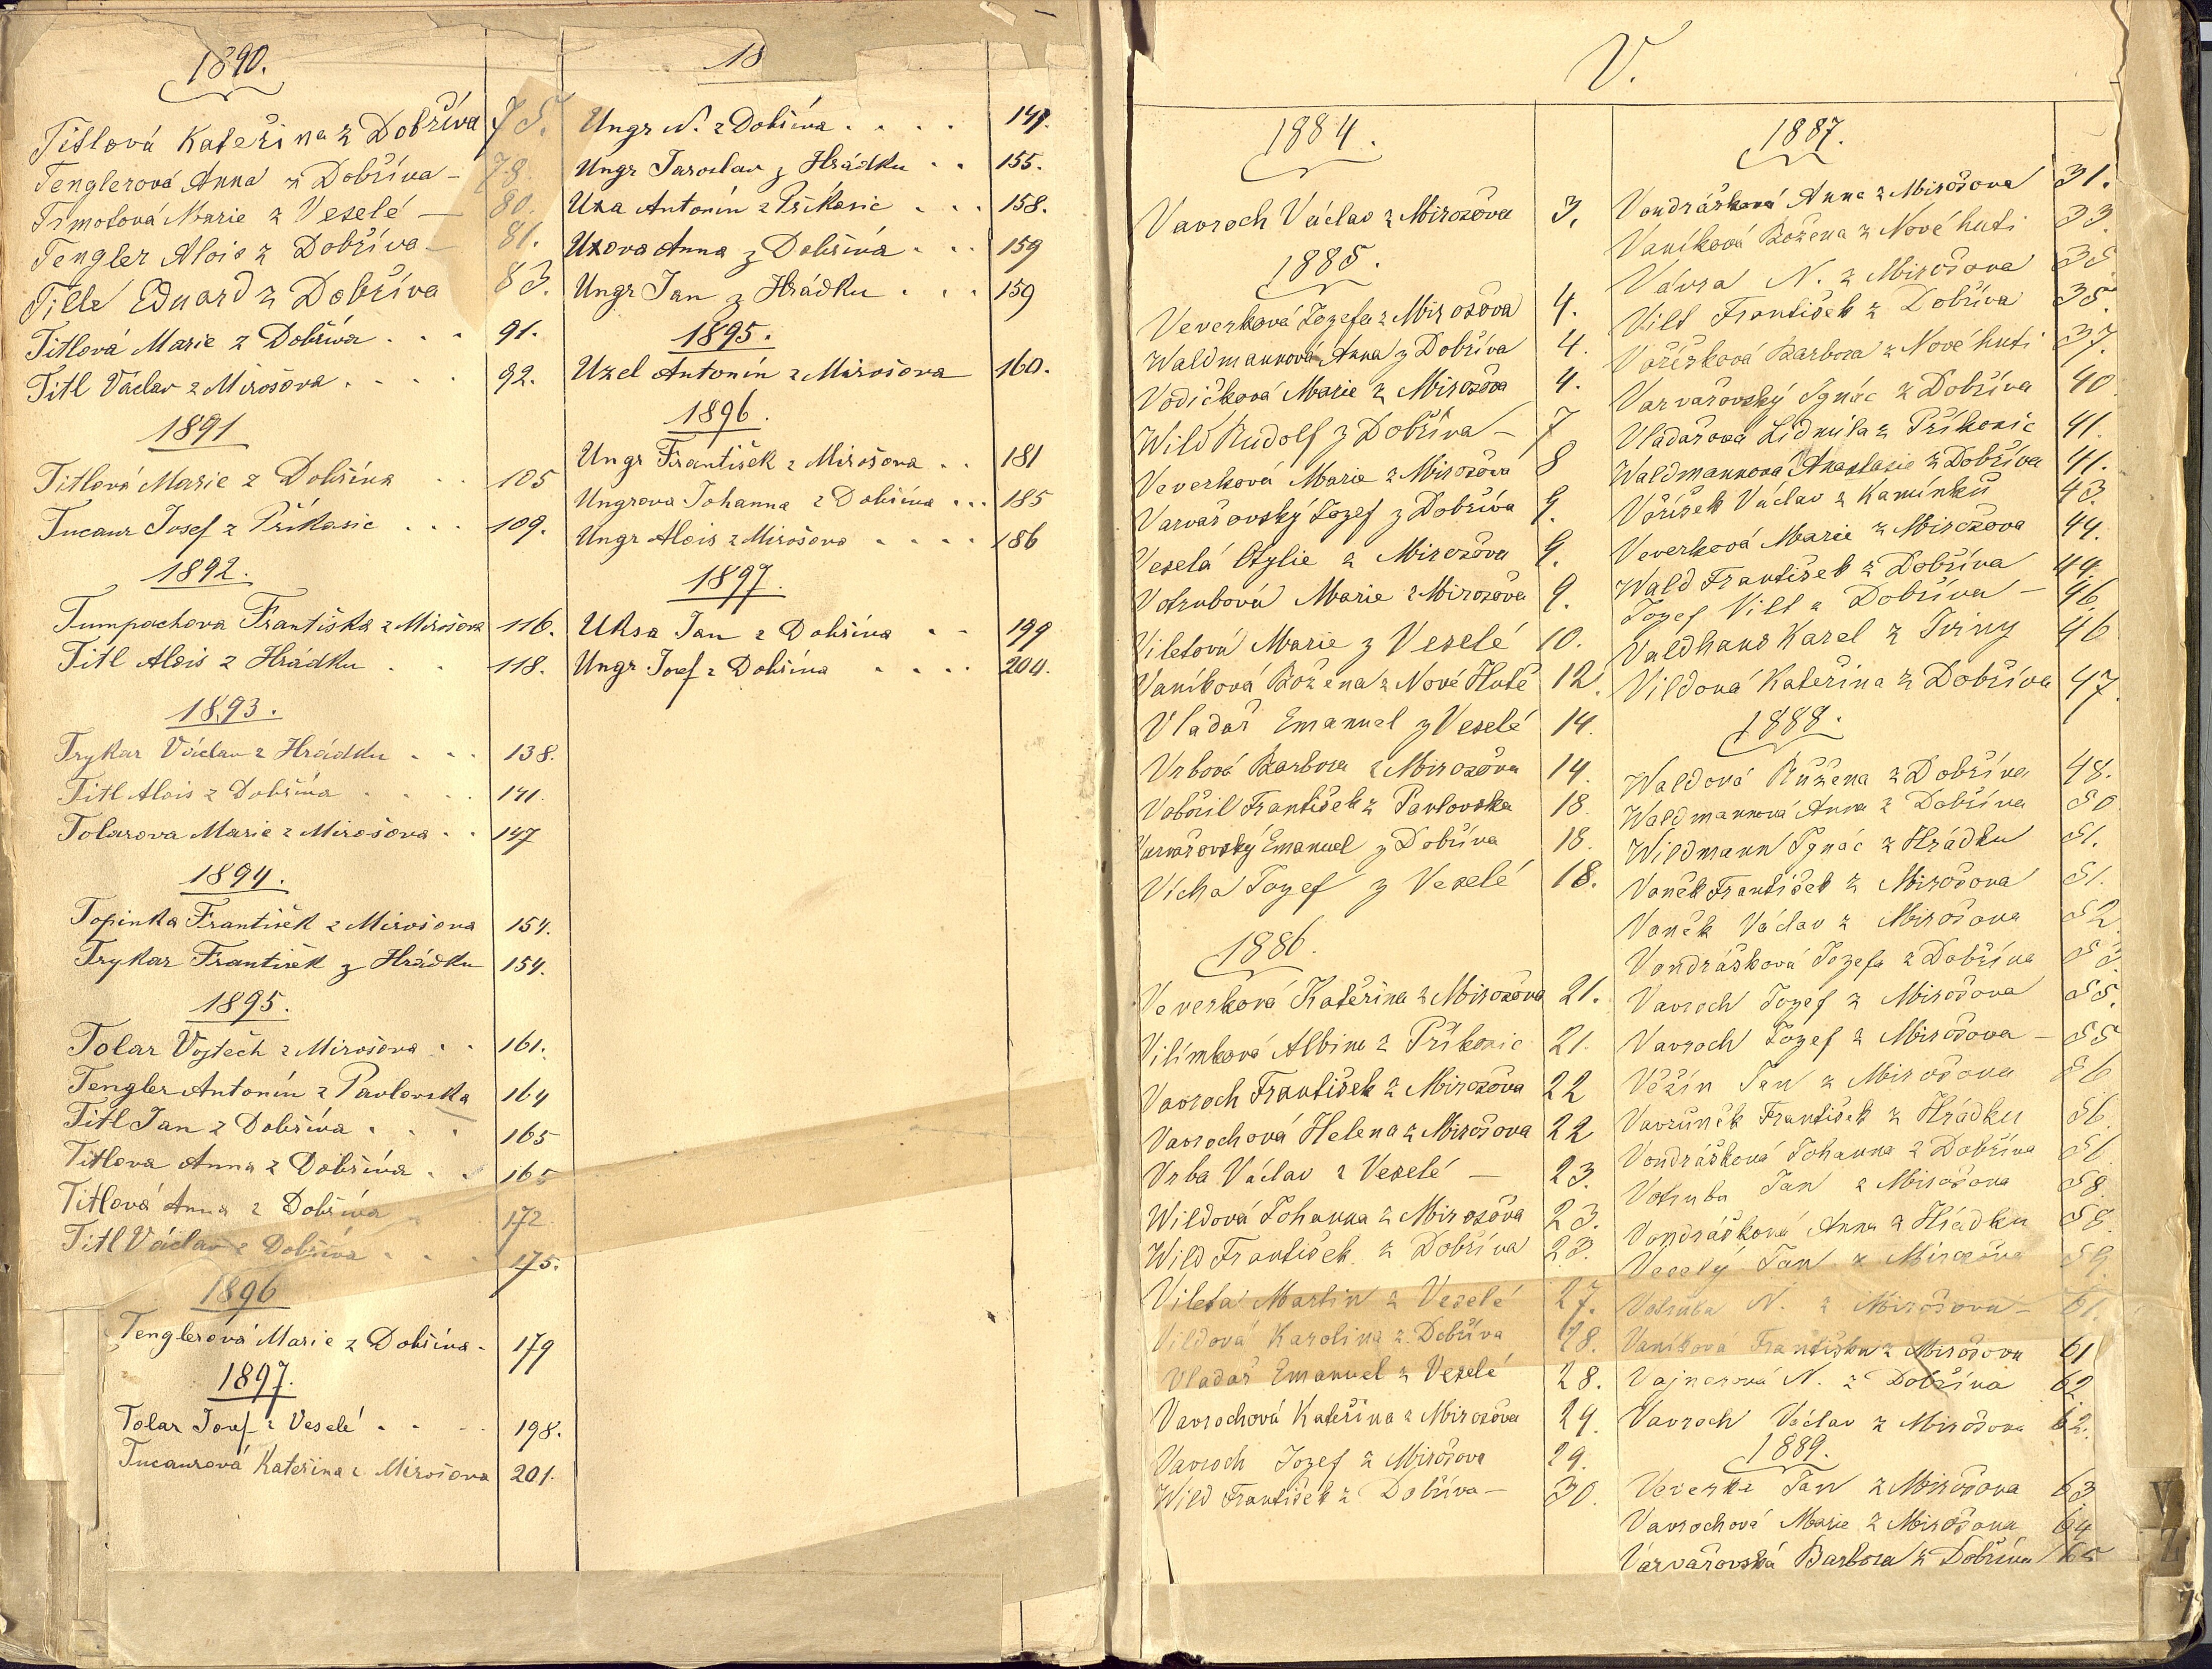 1890.
Titlová Kateřina z Dobříva 75.
Tenglerová Anna z Dobříva – 78.
Trmotová Marie z Veselé – 80.
Tengler Alois z Dobříva – 81.
Tille Eduard z Dobříva 83.
Titlová Marie z Dobříva . . . 91.
Titl Václav z Mirošova . . . . 92.
1891
Titlová Marie z Dobřína . . 105
Tucaur Josef z Příkosic . . . 109.
1892.
Tumpachova Františka z Mirošova 116.
Titl Alois z Hrádku . . 118.
1893.
Trykar Václav z Hrádku . . . 138.
Titl Alois z Dobřína . . . . 141.
Tolarova Marie z Mirošova . . 147
1894.
Topinka František z Mirošova 154.
Trykar František z Hrádku 154.
1895.
Tolar Vojtěch z Mirošova . . 161.
Tengler Antonín z Pavlovska 164
Titl Jan z Dobříva . . . 165
Titlova Anna z Dobříva . . 165
Titlová Anna z Dobříva . 172
Titl Václav z Dobříva . . . 175.
1896
Tenglerová Marie z Dobřína . 179
1897.
Tolar Josef z Veselé . . . . 198.
Tucaurová Kateřina z Mirošova 201.
18
Ungr N. z Dobřína . . . . 147.
Ungr Jaroslav z Hrádku . . 155.
Uxa Antonín z Příkosic . . . 158.
Uxova Anna z Dobřína . . . 159
Ungr Jan z Hrádku . . . 159
1895.
Uxel Antonín z Mirošova 160.
1896.
Ungr František z Mirošova . . 181
Ungrova Johanna z Dobřína . . . 185
Ungr Alois z Mirošova . . . . 186
1897.
Uksa Jan z Dobřína . . 199
Ungr Josef z Dobřína . . . . 204.
V.
1884.
Vavroch Václav z Mirozova 3.
1885.
Veverková Jozefa z Mirozova 4.
Waldmannová Anna z Dobříva 4.
Vodičková Marie z Mirozova 4.
Wild Rudolf z Dobříva – 7
Veverková Marie z Mirozova 8
Varvařovský Jozef z Dobříva 9.
Veselá Otylie z Mirozova 9.
Votrubová Marie z Mirozova 9.
Viletová Marie z Veselé 10.
Vaníková Božena z Nové Hutě 12.
Vladař Emanuel z Veselé 14.
Vrbová Barbora z Mirozova 14.
Vobořil František z Pavlovska 18.
Varvařovský Emanuel z Dobříva 18.
Vícha Jozef z Veselé 18.
1886.
Veverková Kateřina z Mirozova 21.
Vilímková Albina z Příkosic 21.
Vavroch František z Mirozova 22
Vavrochová Helena z Mirošova 22
Vrba Václav z Veselé – 23.
Wildová Johanna z Mirozova 23.
Wild František z Dobříva 23.
Vileta Martin z Veselé 27.
Vildová Karolina z Dobříva 28.
Vladař Emanuel z Veselé 28.
Vavrochová Kateřina z Mirozova 29.
Vavroch Jozef z Mirošova 29.
Wild František z Dobříva – 30.
1887.
Vondrášková Anna z Mirošova 31.
Vaníková Božena z Nové huti 33.
Vávra N. z Mirošova 35
Vilt František z Dobříva 35.
Voříšková Barbora z Nové huti 37.
Varvařovský Ignác z Dobříva 40
Vladařova Lidmila z Příkosic 41.
Waldmannová Anastasie z Dobříva 41.
Voříšek Václav z Kamínku 43.
Veverková Marie z Mirozova 44.
Wald František z Dobříva 44.
Jozef Vilt z Dobříva – 46.
Valdhans Karel z Tviny 46
Vildová Kateřina z Dobříva 47.
1888.
Waldová Růžena z Dobříva 48.
Waldmannová Anna z Dobříva 50
Wildmann Ignác z Hrádku 51.
Vaněk František z Mirošova 51.
Vaněk Václav z Mirošova 52.
Vondrášková Jozefa z Dobříva 53.
Vavroch Jozef z Mirošova 55.
Vavroch Jozef z Mirošova – 55
Věžín Jan z Mirošova 56
Vavřuněk František z Hrádku 56.
Vondrášková Johanna z Dobříva 56
Votruba Jan z Mirošova 58.
Vondrášková Anna z Hrádku 58.
Veselý Jan z Mirozova 59.
Votruba N. z Mirošova – 61.
Vaníková Františka z Mirošova 61
Vajnerová N. z Dobříva 62
Vavroch Václav z Mirošova 62.
1889.
Veverka Jan z Mirošova 63
Vavrochová Marie z Mirošova 64
Varvařovská Barbora z Dobříva 65